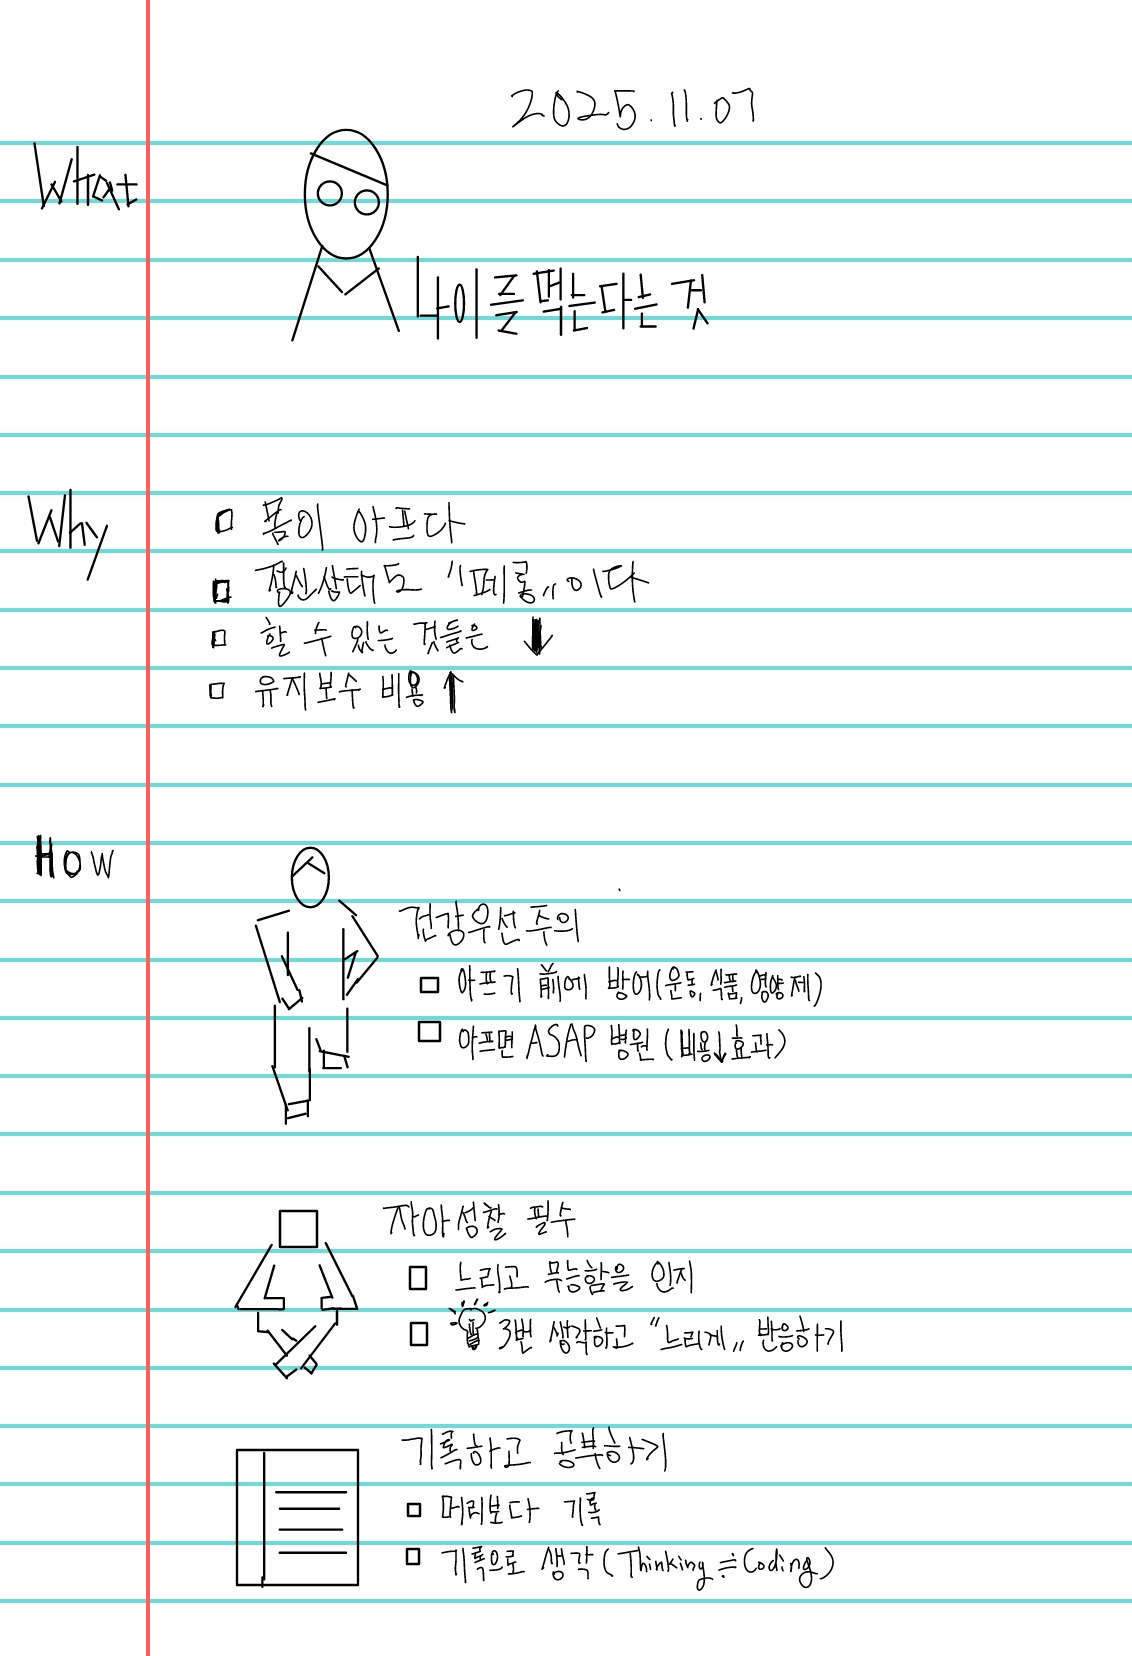 2025.11.07
What
나이를 먹는다는 것
Why
몸이 아프다
정신상태도 "메롱"이다
할 수 있는 것들은 ↓
유지보수 비용 ↑
How
건강우선주의
아프기 前에 방어(운동, 식품, 영양제)
아프면 ASAP 병원 (비용↓효과)
자아성찰 필수
느리고 무능함을 인지
3번 생각하고 "느리게" 반응하기
기록하고 공부하기
머리보다 기록
기록으로 생각 (Thinking ≒ Coding)